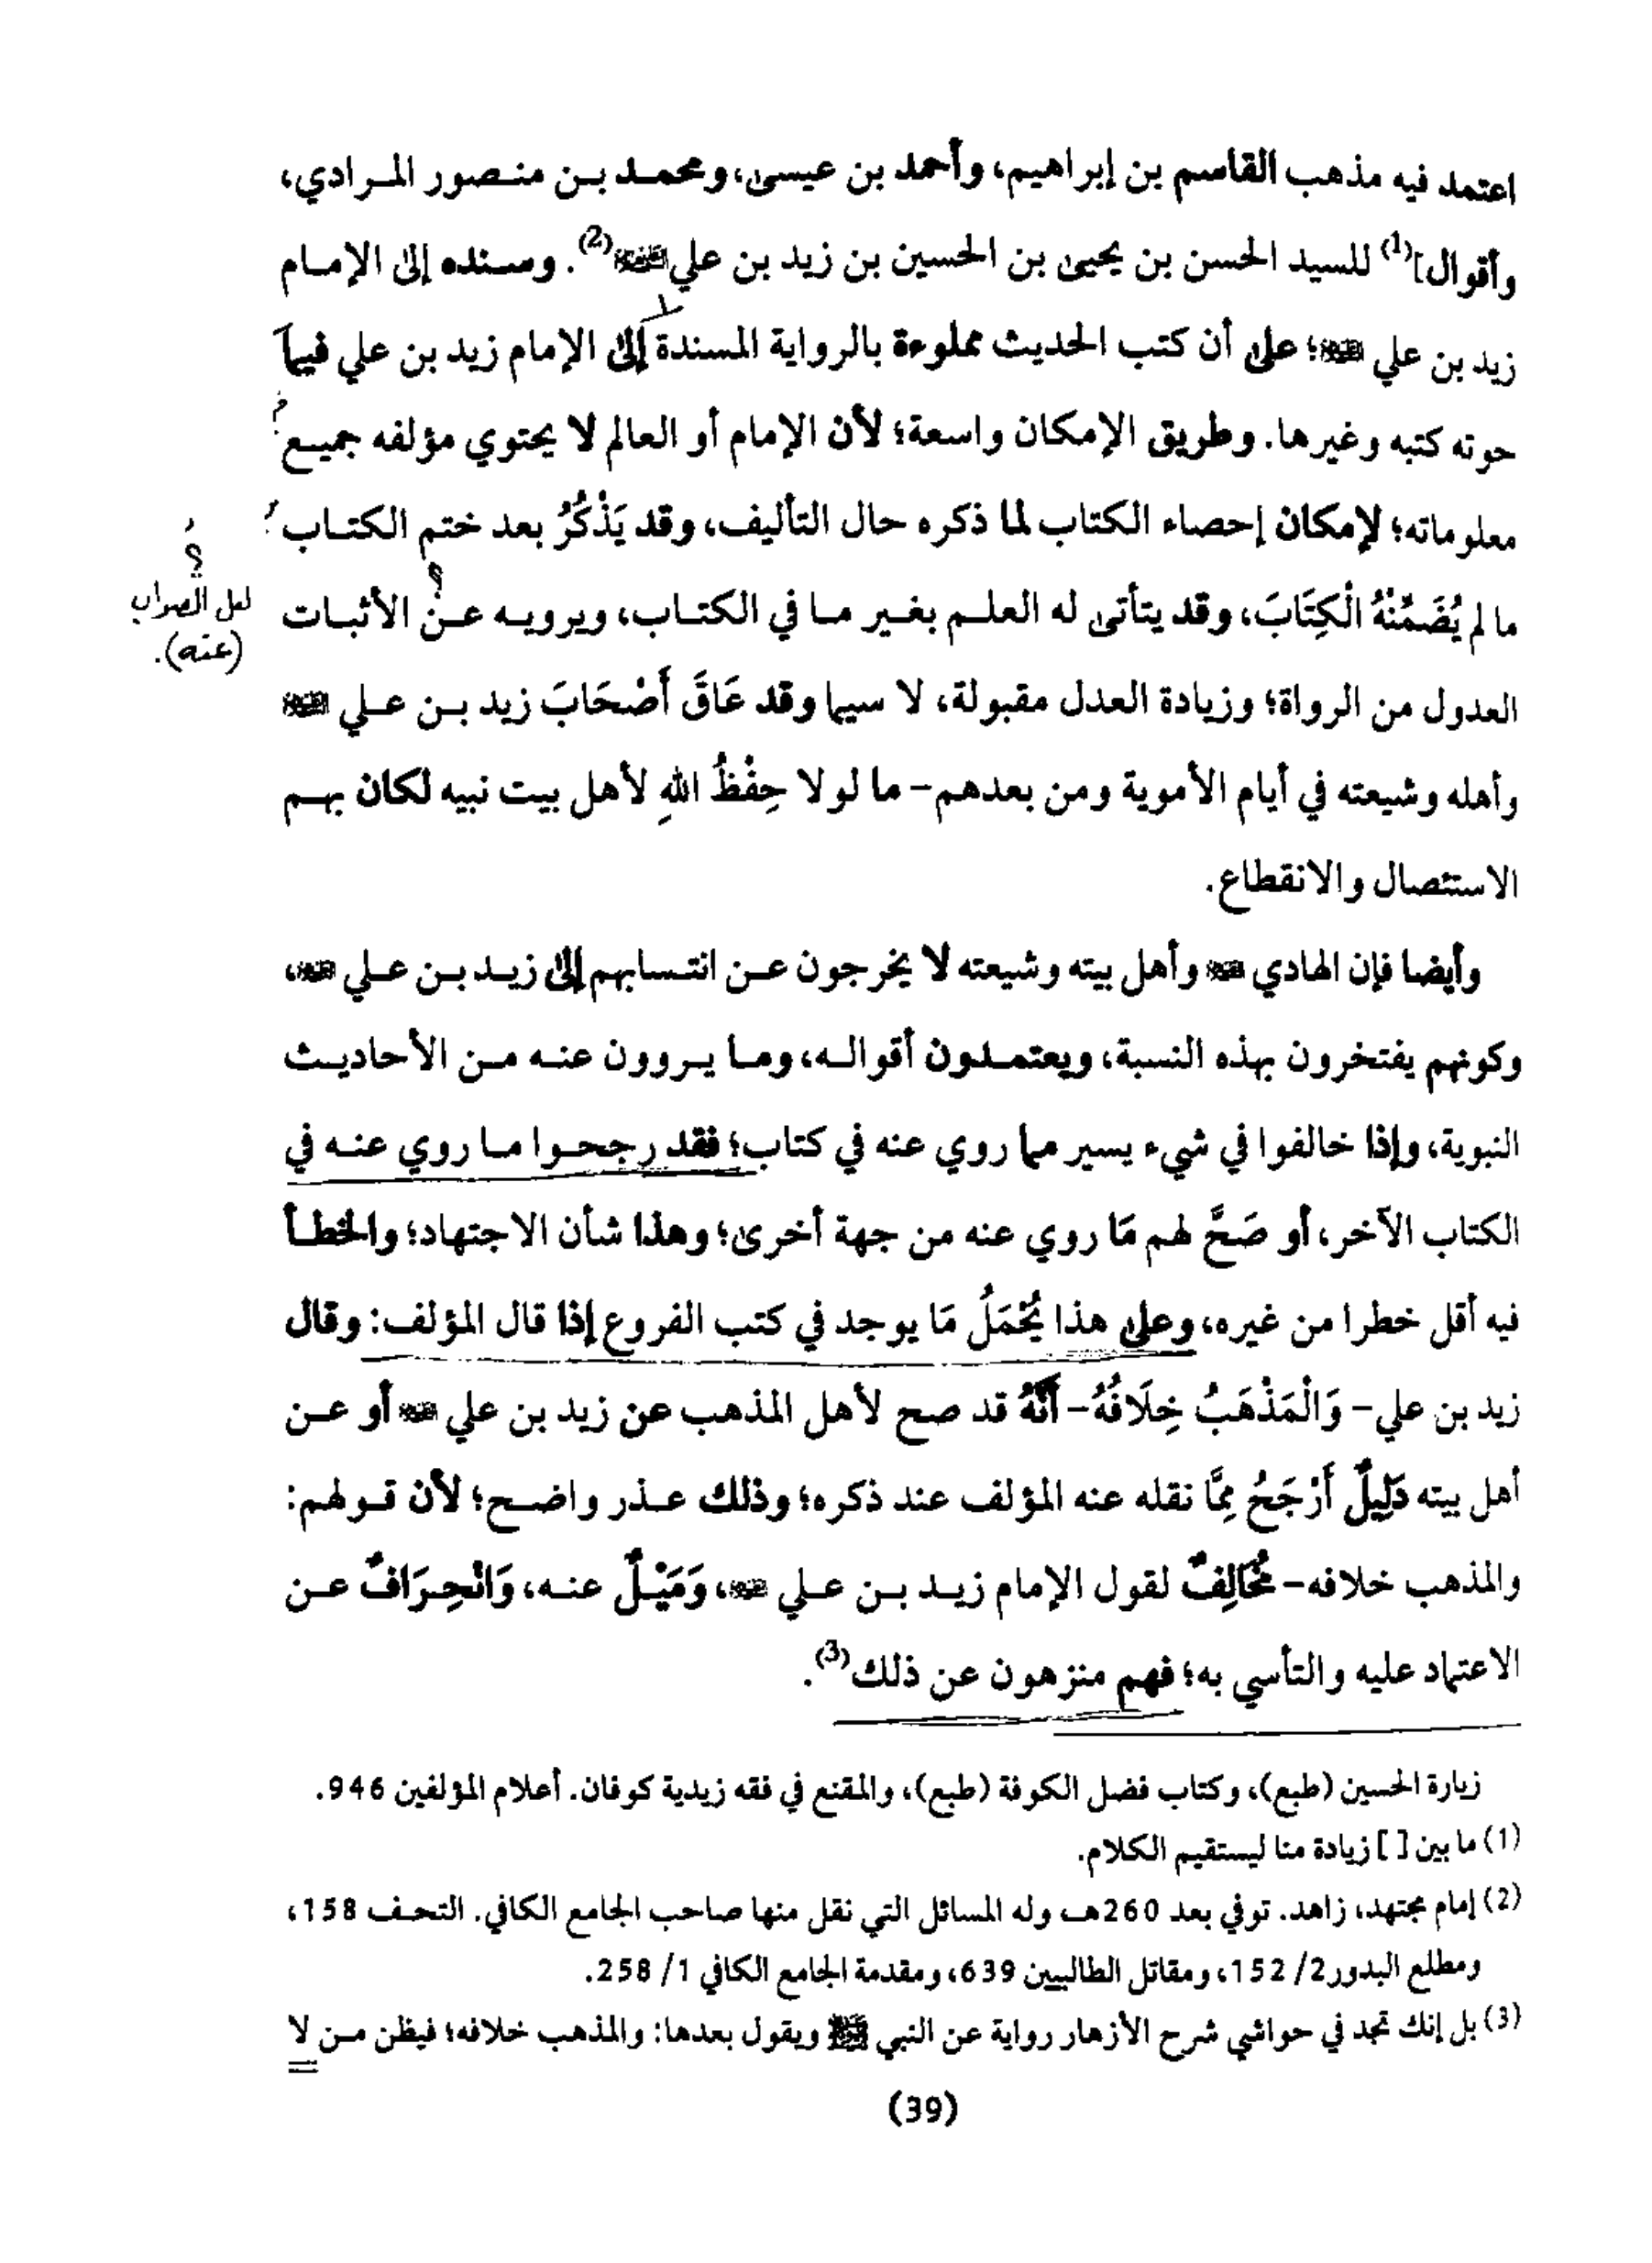 اعتمد فيه مذهب القاسم بن إبراهيم، وأحمد بن عيسى، ومحمد بن منصور المرادي،
وأقوال](1) للسيد الحسن بن يحيى بن الحسين بن زيد بن علي (2). وسنده إلى الإمام
زيد بن علي ؛ على أن كتب الحديث مملوءة بالرواية المسندة إلى الإمام زيد بن علي فيما
حوته كتبه وغيرها. وطريق الإمكان واسعة؛ لأن الإمام أو العالم لا يحتوي مؤلفه جميع
معلوماته؛ لإمكان إحصاء الكتاب لما ذكره حال التأليف، وقد يَذْكُرُ بعد ختم الكتاب
ما لم يُضَمِّنْهُ الْكِتَابَ، وقد يتأتى له العلم بغير ما في الكتاب، ويرويه عن الأثبات
؟
لعل الصواب
(عنه).
العدول من الرواة؛ وزيادة العدل مقبولة، لا سيما وقد عَاقَ أَصْحَابَ زيد بن علي
وأهله وشيعته في أيام الأموية ومن بعدهم- ما لولا حِفْظُ اللهِ لأهل بيت نبيه لكان بهم
الاستئصال والانقطاع.
وأيضا فإن الهادي وأهل بيته وشيعته لا يخرجون عن انتسابهم إلى زيد بن علي ،
وكونهم يفتخرون بهذه النسبة، ويعتمدون أقواله، وما يروون عنه من الأحاديث
النبوية، وإذا خالفوا في شيء يسير مما روي عنه في كتاب؛ فقد رجحوا ما روي عنه في
الكتاب الآخر، أو صَحَّ لهم مَا روي عنه من جهة أخرى؛ وهذا شأن الاجتهاد؛ والخطأ
فيه أقل خطرا من غيره، وعلى هذا يُحْمَلُ مَا يوجد في كتب الفروع إذا قال المؤلف: وقال
زيد بن علي- وَالْمَذْهَبُ خِلَافُهُ- أَنَّهُ قد صح لأهل المذهب عن زيد بن علي أو عن
أهل بيته دَلِيلٌ أَرْجَحُ مِمَّا نقله عنه المؤلف عند ذكره؛ وذلك عذر واضح؛ لأن قولهم:
والمذهب خلافه- مُخَالِفٌ لقول الإمام زيد بن علي ، وَمَيْلٌ عنه، وَانْحِرَافٌ عن
الاعتماد عليه والتأسي به؛ فهم منزهون عن ذلك(3).
زيارة الحسين (طبع)، وكتاب فضل الكوفة (طبع)، والمقنع في فقه زيدية كوفان. أعلام المؤلفين 946.
(1) ما بين [ ] زيادة منا ليستقيم الكلام.
(2) إمام مجتهد، زاهد. توفي بعد 260هـ وله المسائل التي نقل منها صاحب الجامع الكافي. التحف 158،
ومطلع البدور2/ 152، ومقاتل الطالبيين 639، ومقدمة الجامع الكافي 1/ 258.
(3) بل إنك تجد في حواشي شرح الأزهار رواية عن النبي ﷺ ويقول بعدها: والمذهب خلافه؛ فيظن من لا
(39)